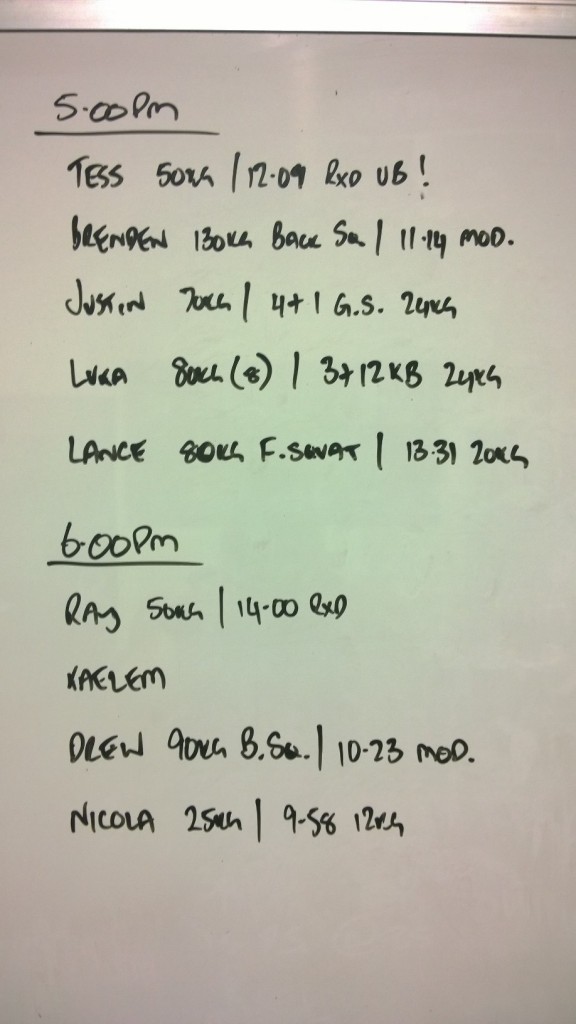 5.00Pm
TESS 50KG | 12.09 RXD UB!
BRENDEN 130KG BACK SQ | 11.14 MOD.
JUSTIN 70KG | 4+1 G.S. 24KG
LUKA 80KG (8) | 3+12 KB 24KG
LANCE 80KG F.SQUAT | 13.31 20KG
6.00Pm
RAY 50KG | 14-00 RXD
KAELEM
DREW 90KG B.SQ. | 10-23 MOD.
NICOLA 25KG | 9-58 12KG